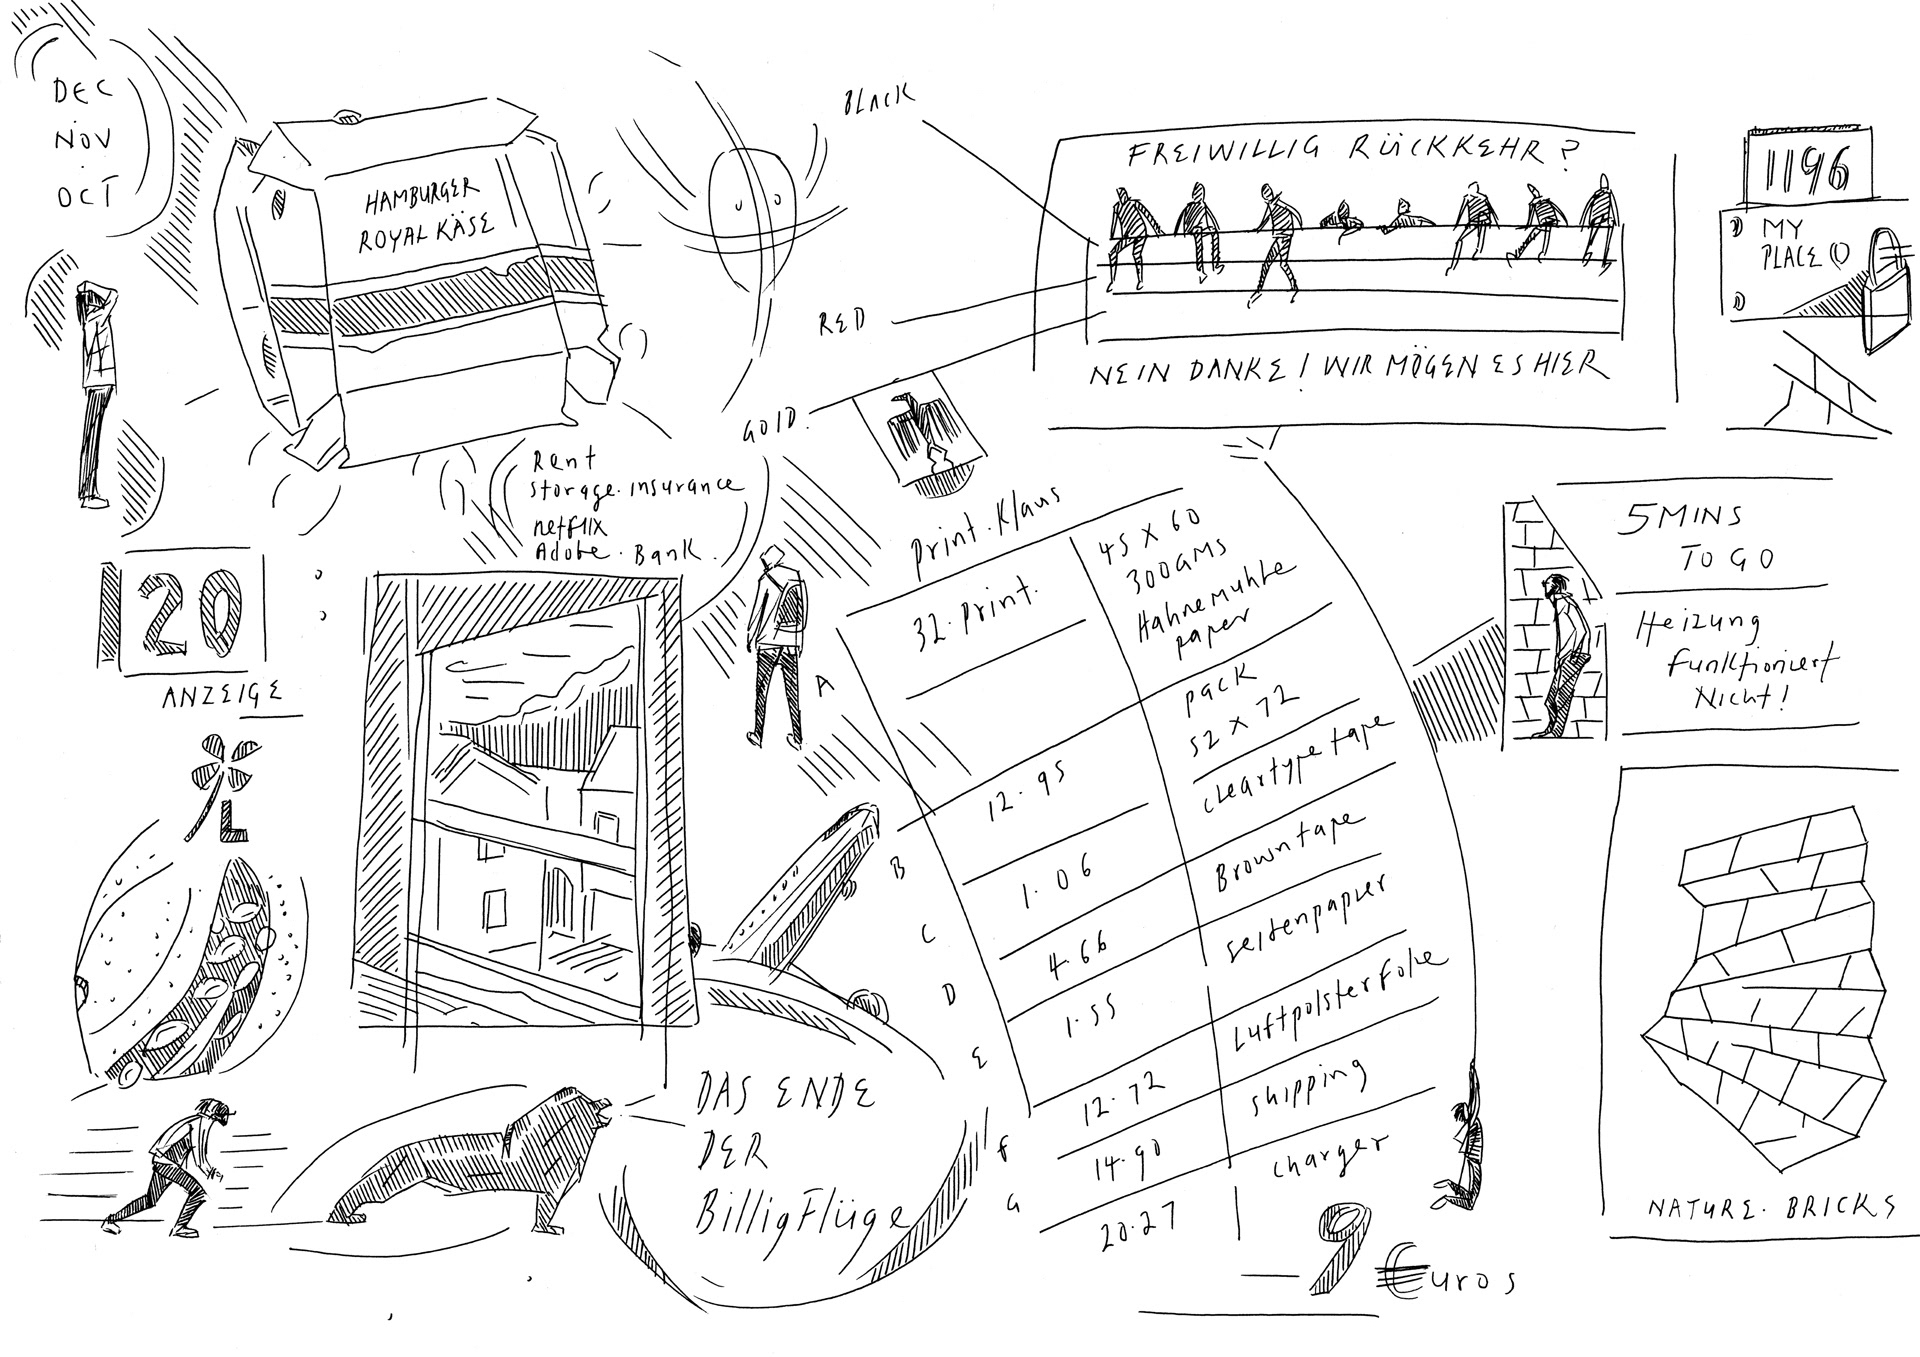 DEC
NOV
OCT
HAMBURGER
ROYAL KÄSE
BLACK
RED
GOLD.
FREIWILLIG RÜCKKEHR?
NEIN DANKE! WIR MÖGEN ES HIER
1196
MY
PLACE
Rent
storage. insurance
netflix
Adobe. Bank.
20
ANZEIGE
L
print. Klaus
32. print.
45 X 60
300GMS
Hahnemuhle
paper
A
pack
52 X 72
12.95
cleartype tape
B
1.06
Brown tape
C
4.66
seidenpapier
D
1.55
Luftpolsterfolie
E
12.72
shipping
F
14.90
charger
G
20.27
-9 €uros
5 MINS
TO GO
Heizung
funktioniert
Nicht!
NATURE. BRICKS
DAS ENDE
DER
BilligFlüge